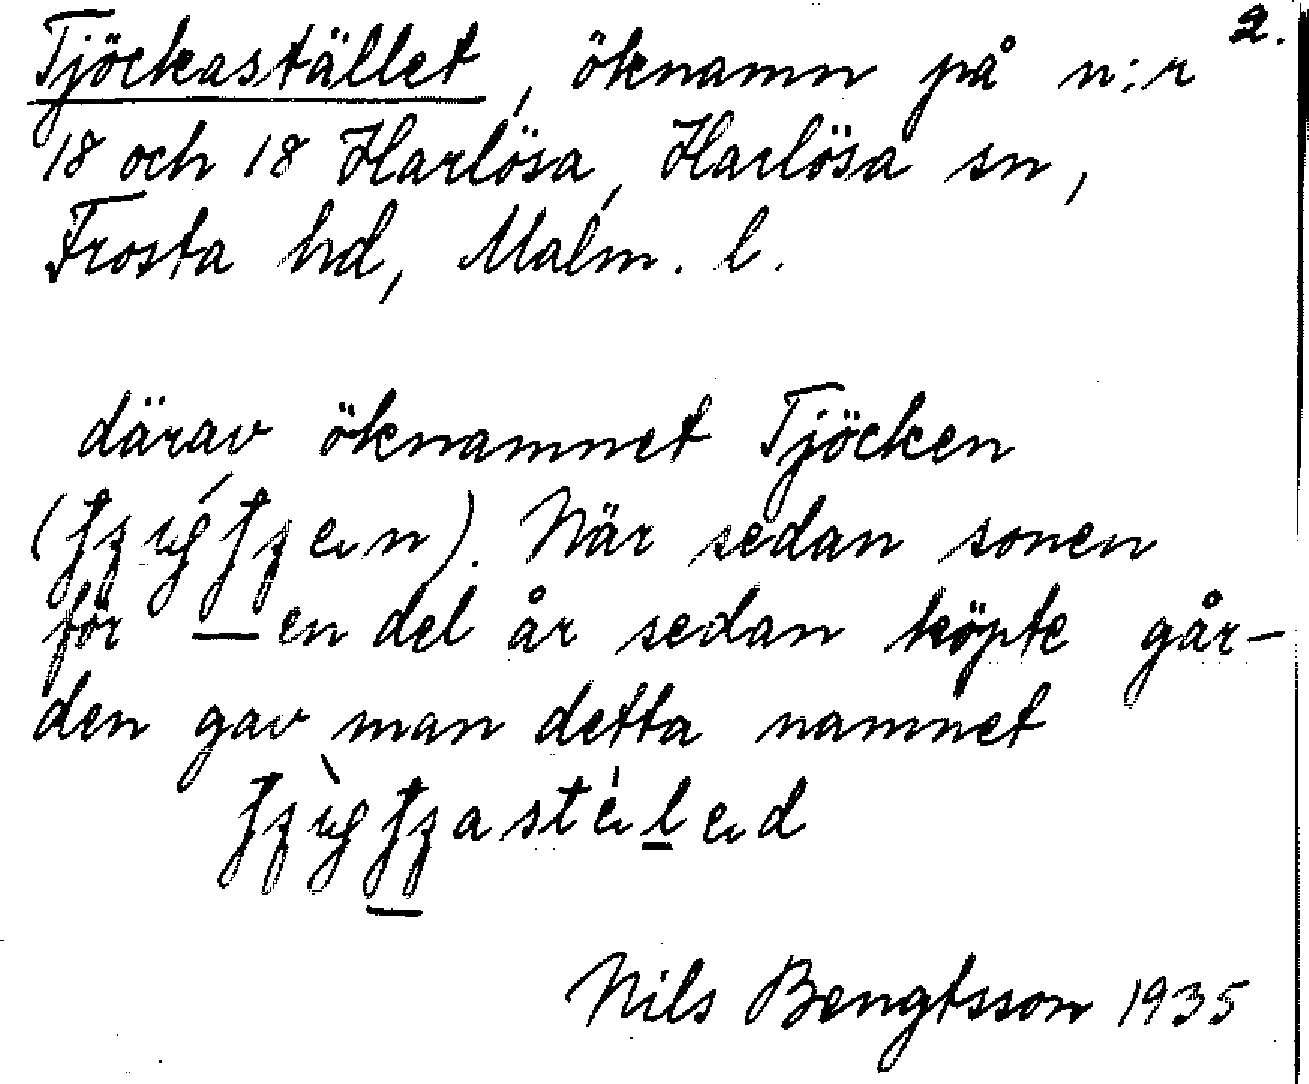 2.
Tjöckastället, öknamn på n:r
18 och 18 Harlösa, Harlösa sn,
Frosta hd, Malm. l.
därav öknamnet Tjöcken
När sedan sonen
för — en del år sedan köpte går-
den gav man detta namnet
Nils Bengtsson 1935